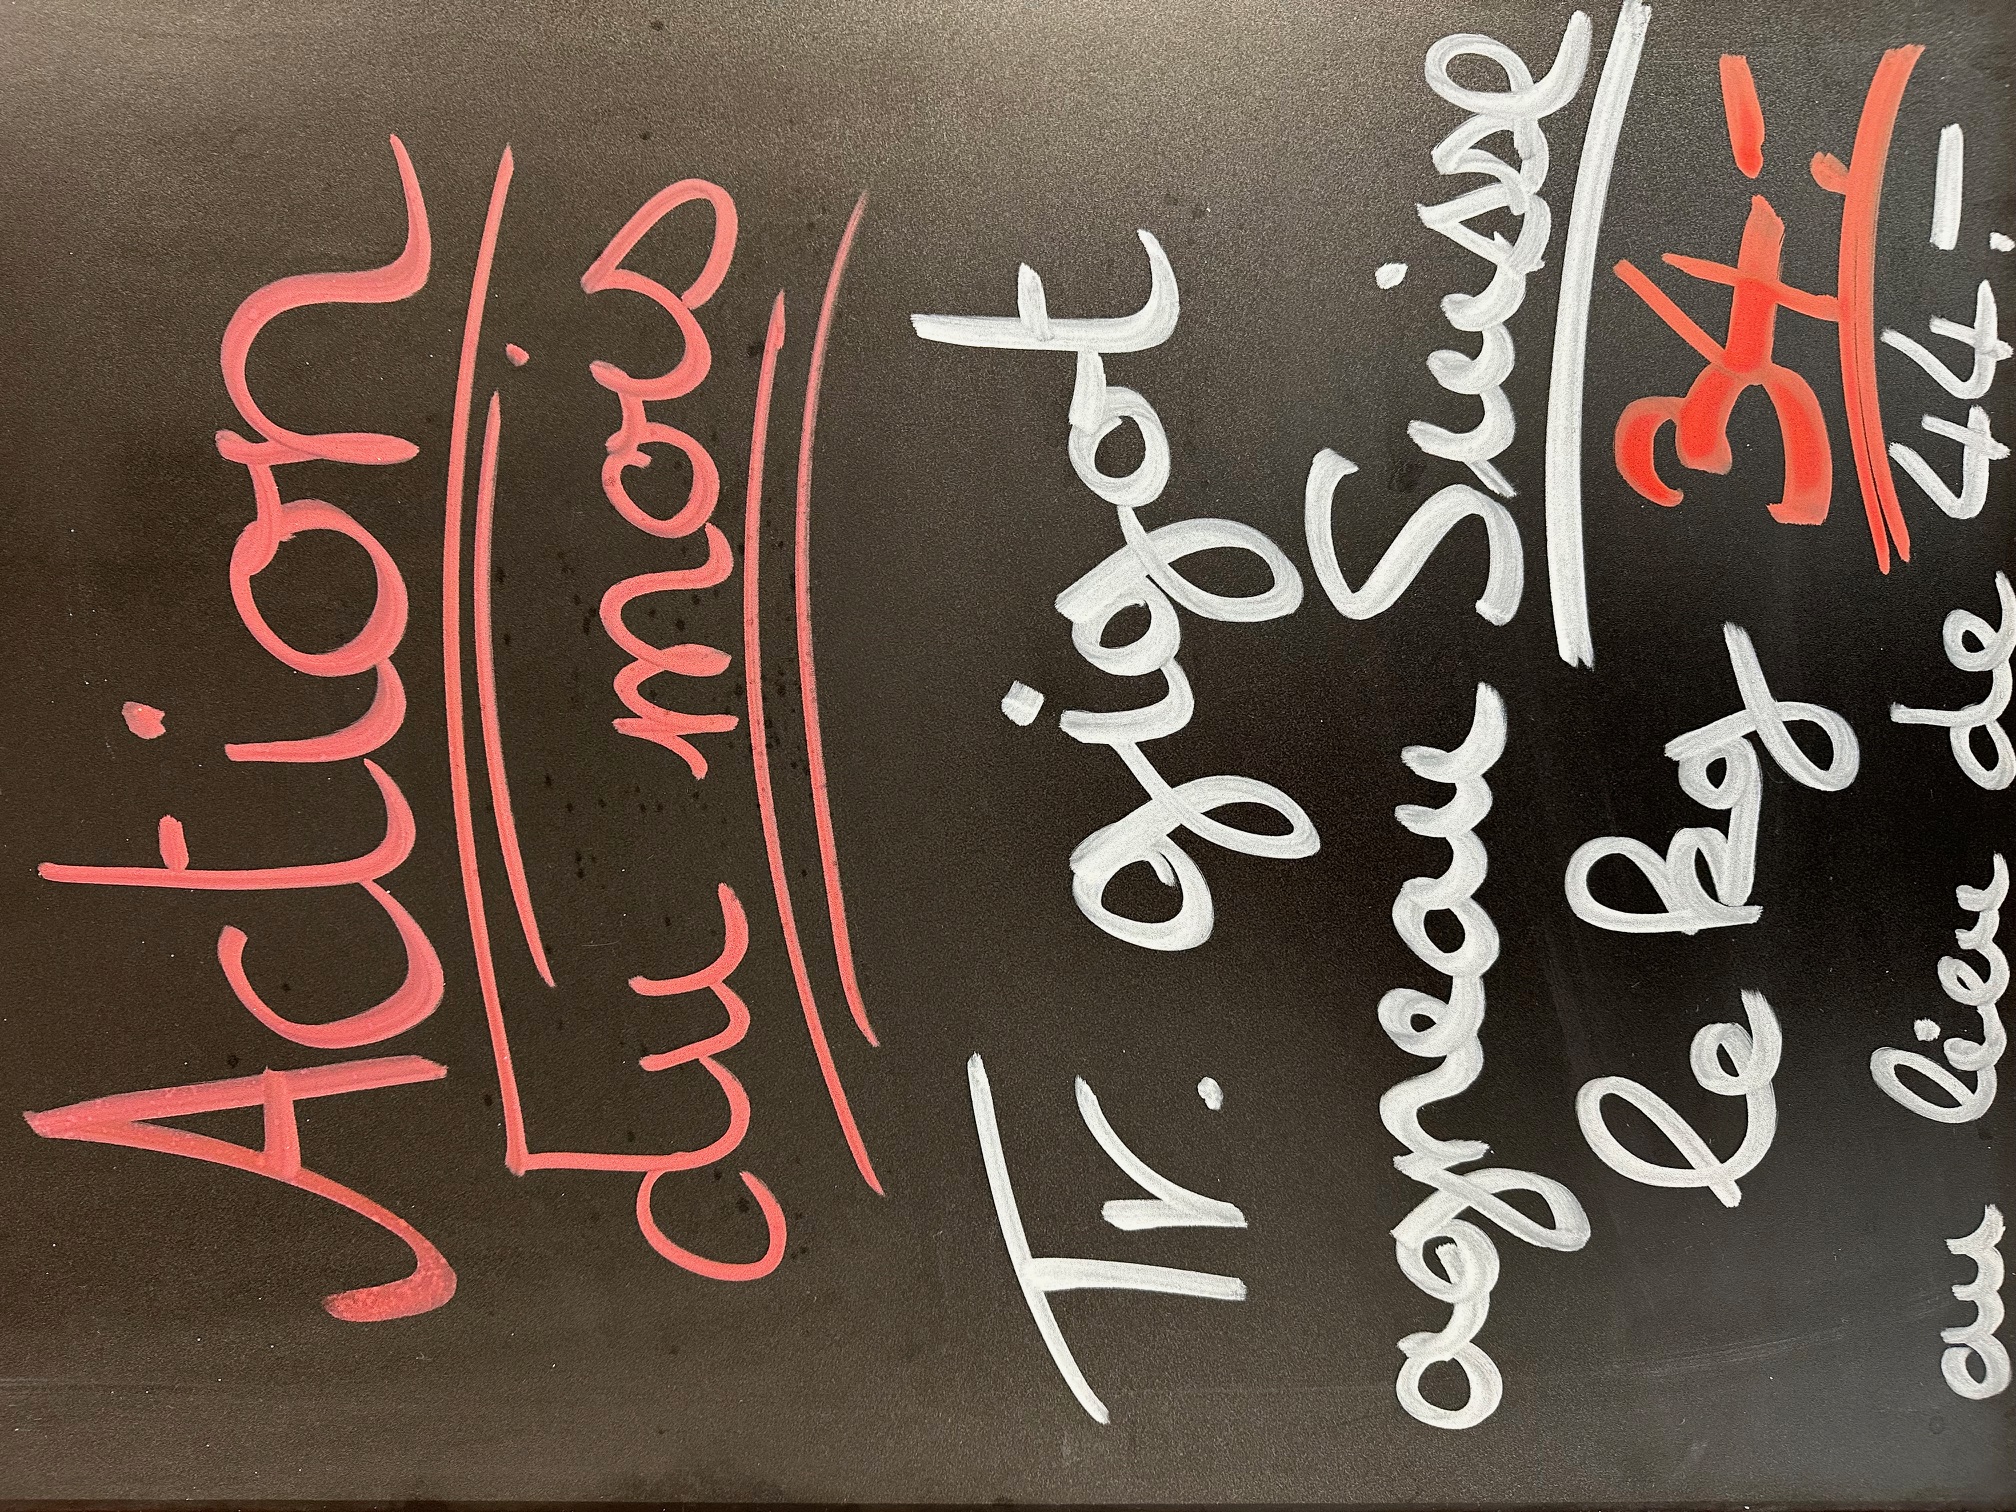 Action
du mois
Tr. gigot
agneau Suisse
le kg 34.-
au lieu de 44.-